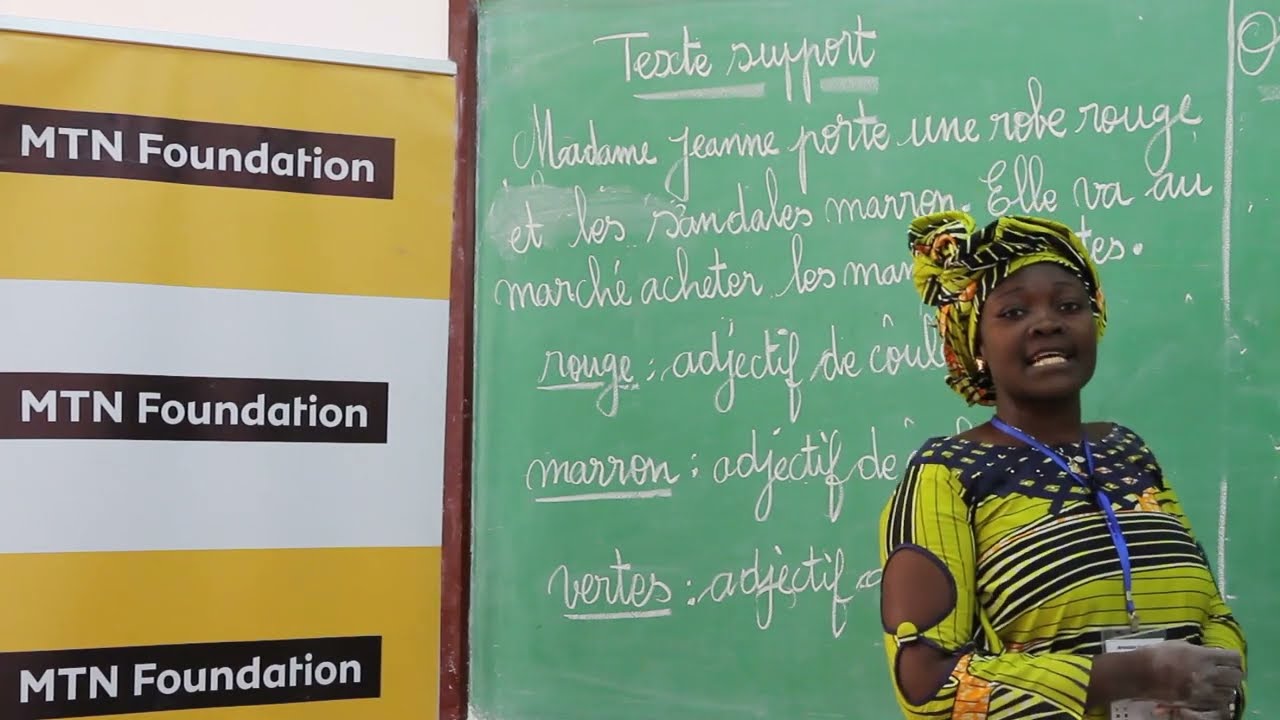 MTN Foundation
MTN Foundation
MTN Foundation
Texte support
Madame Jeanne porte une robe rouge
et les sandales marron. Elle va au
marché acheter les
rouge : adjectif de
marron : adjectif de
vertes : adjectif